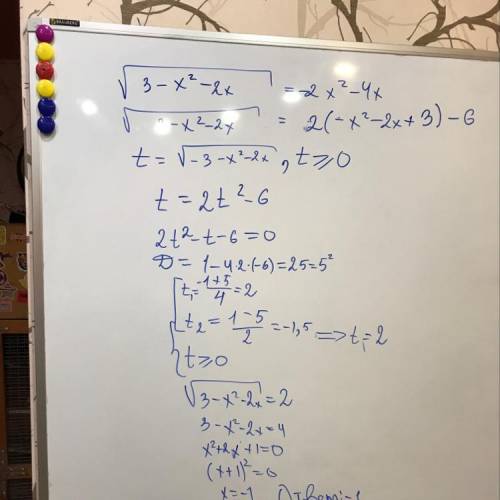 √3-x²-2x = -2x²-4x
√3-x²-2x = 2(-x²-2x+3)-6
t = √-3-x²-2x, t⩾0
t = 2t²-6
2t²-t-6=0
D = 1-4·2·(-6)=25=5²
t₁=-1+5/4=2
t₂=1-5/2=-1,5 ⟹ t₁=2
t⩾0
√3-x²-2x=2
3-x²-2x=4
x²+2x+1=0
(x+1)²=0
x=-1 Ответ:-1